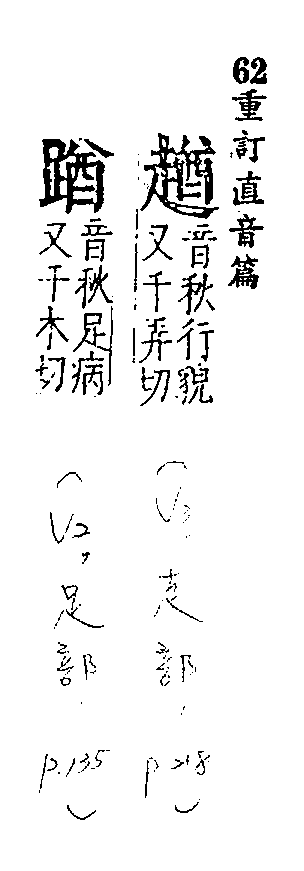 62重訂直音篇
趥
音秋行貌
又千弄切
走部. p 218)
音秋足病
又千木切
(V2, 足部. p.135)